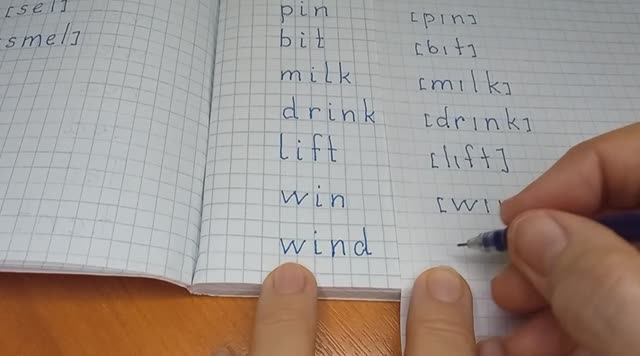 [sel]
smel]
pin [pın]
bit [bıt]
milk [mılk]
drink [drınk]
lift [lıft]
win [wı
wind